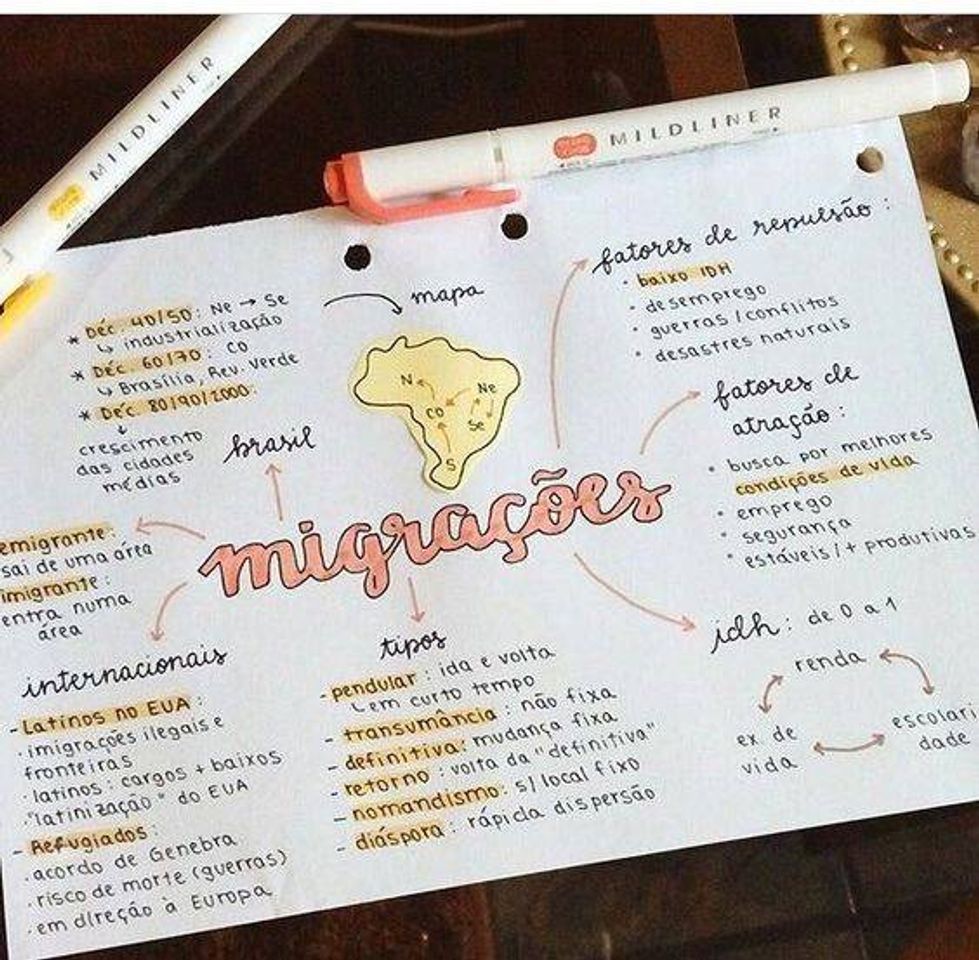 MILDLINER
MILDLINER
* Déc. 40/50: Ne → Se
↳ industrialização
* Déc. 60/70: CO
↳ Brasília, Rev. Verde
* Déc. 80/90/2000:
↓
crescimento
das cidades
médias
brasil
mapa
N
Ne
CO
Se
S
fatores de repulsão:
· baixo IDH
· desemprego
· guerras/conflitos
· desastres naturais
fatores de
atração:
· busca por melhores
condições de vida
· emprego
· segurança
· estáveis/+ produtivas
migrações
emigrante:
sai de uma área
imigrante:
entra numa
área
internacionais
- Latinos no EUA:
· imigrações ilegais e
fronteiras
· latinos: cargos + baixos
· "latinização" do EUA
- Refugiados:
· acordo de Genebra
· risco de morte (guerras)
· em direção à Europa
tipos
- pendular: ida e volta
↳ em curto tempo
- transumância: não fixa
- definitiva: mudança fixa
- retorno: volta da "definitiva"
- nomandismo: s/ local fixo
- diáspora: rápida dispersão
idh: de 0 a 1
renda
ex. de
vida
escolari
dade